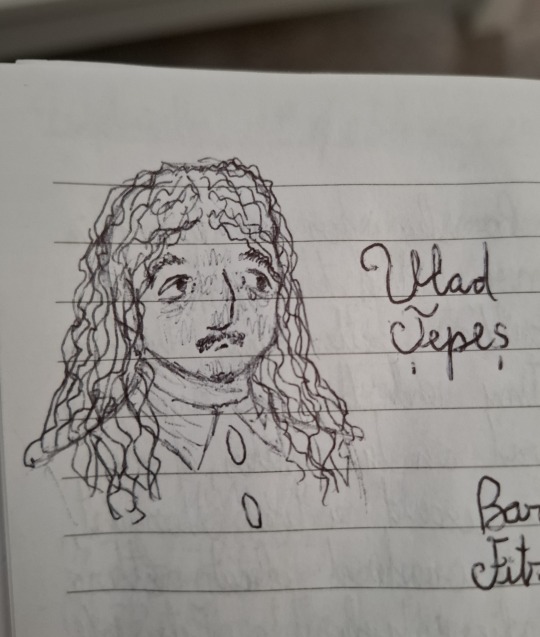 Vlad
Țepeș
Bar
Fitz